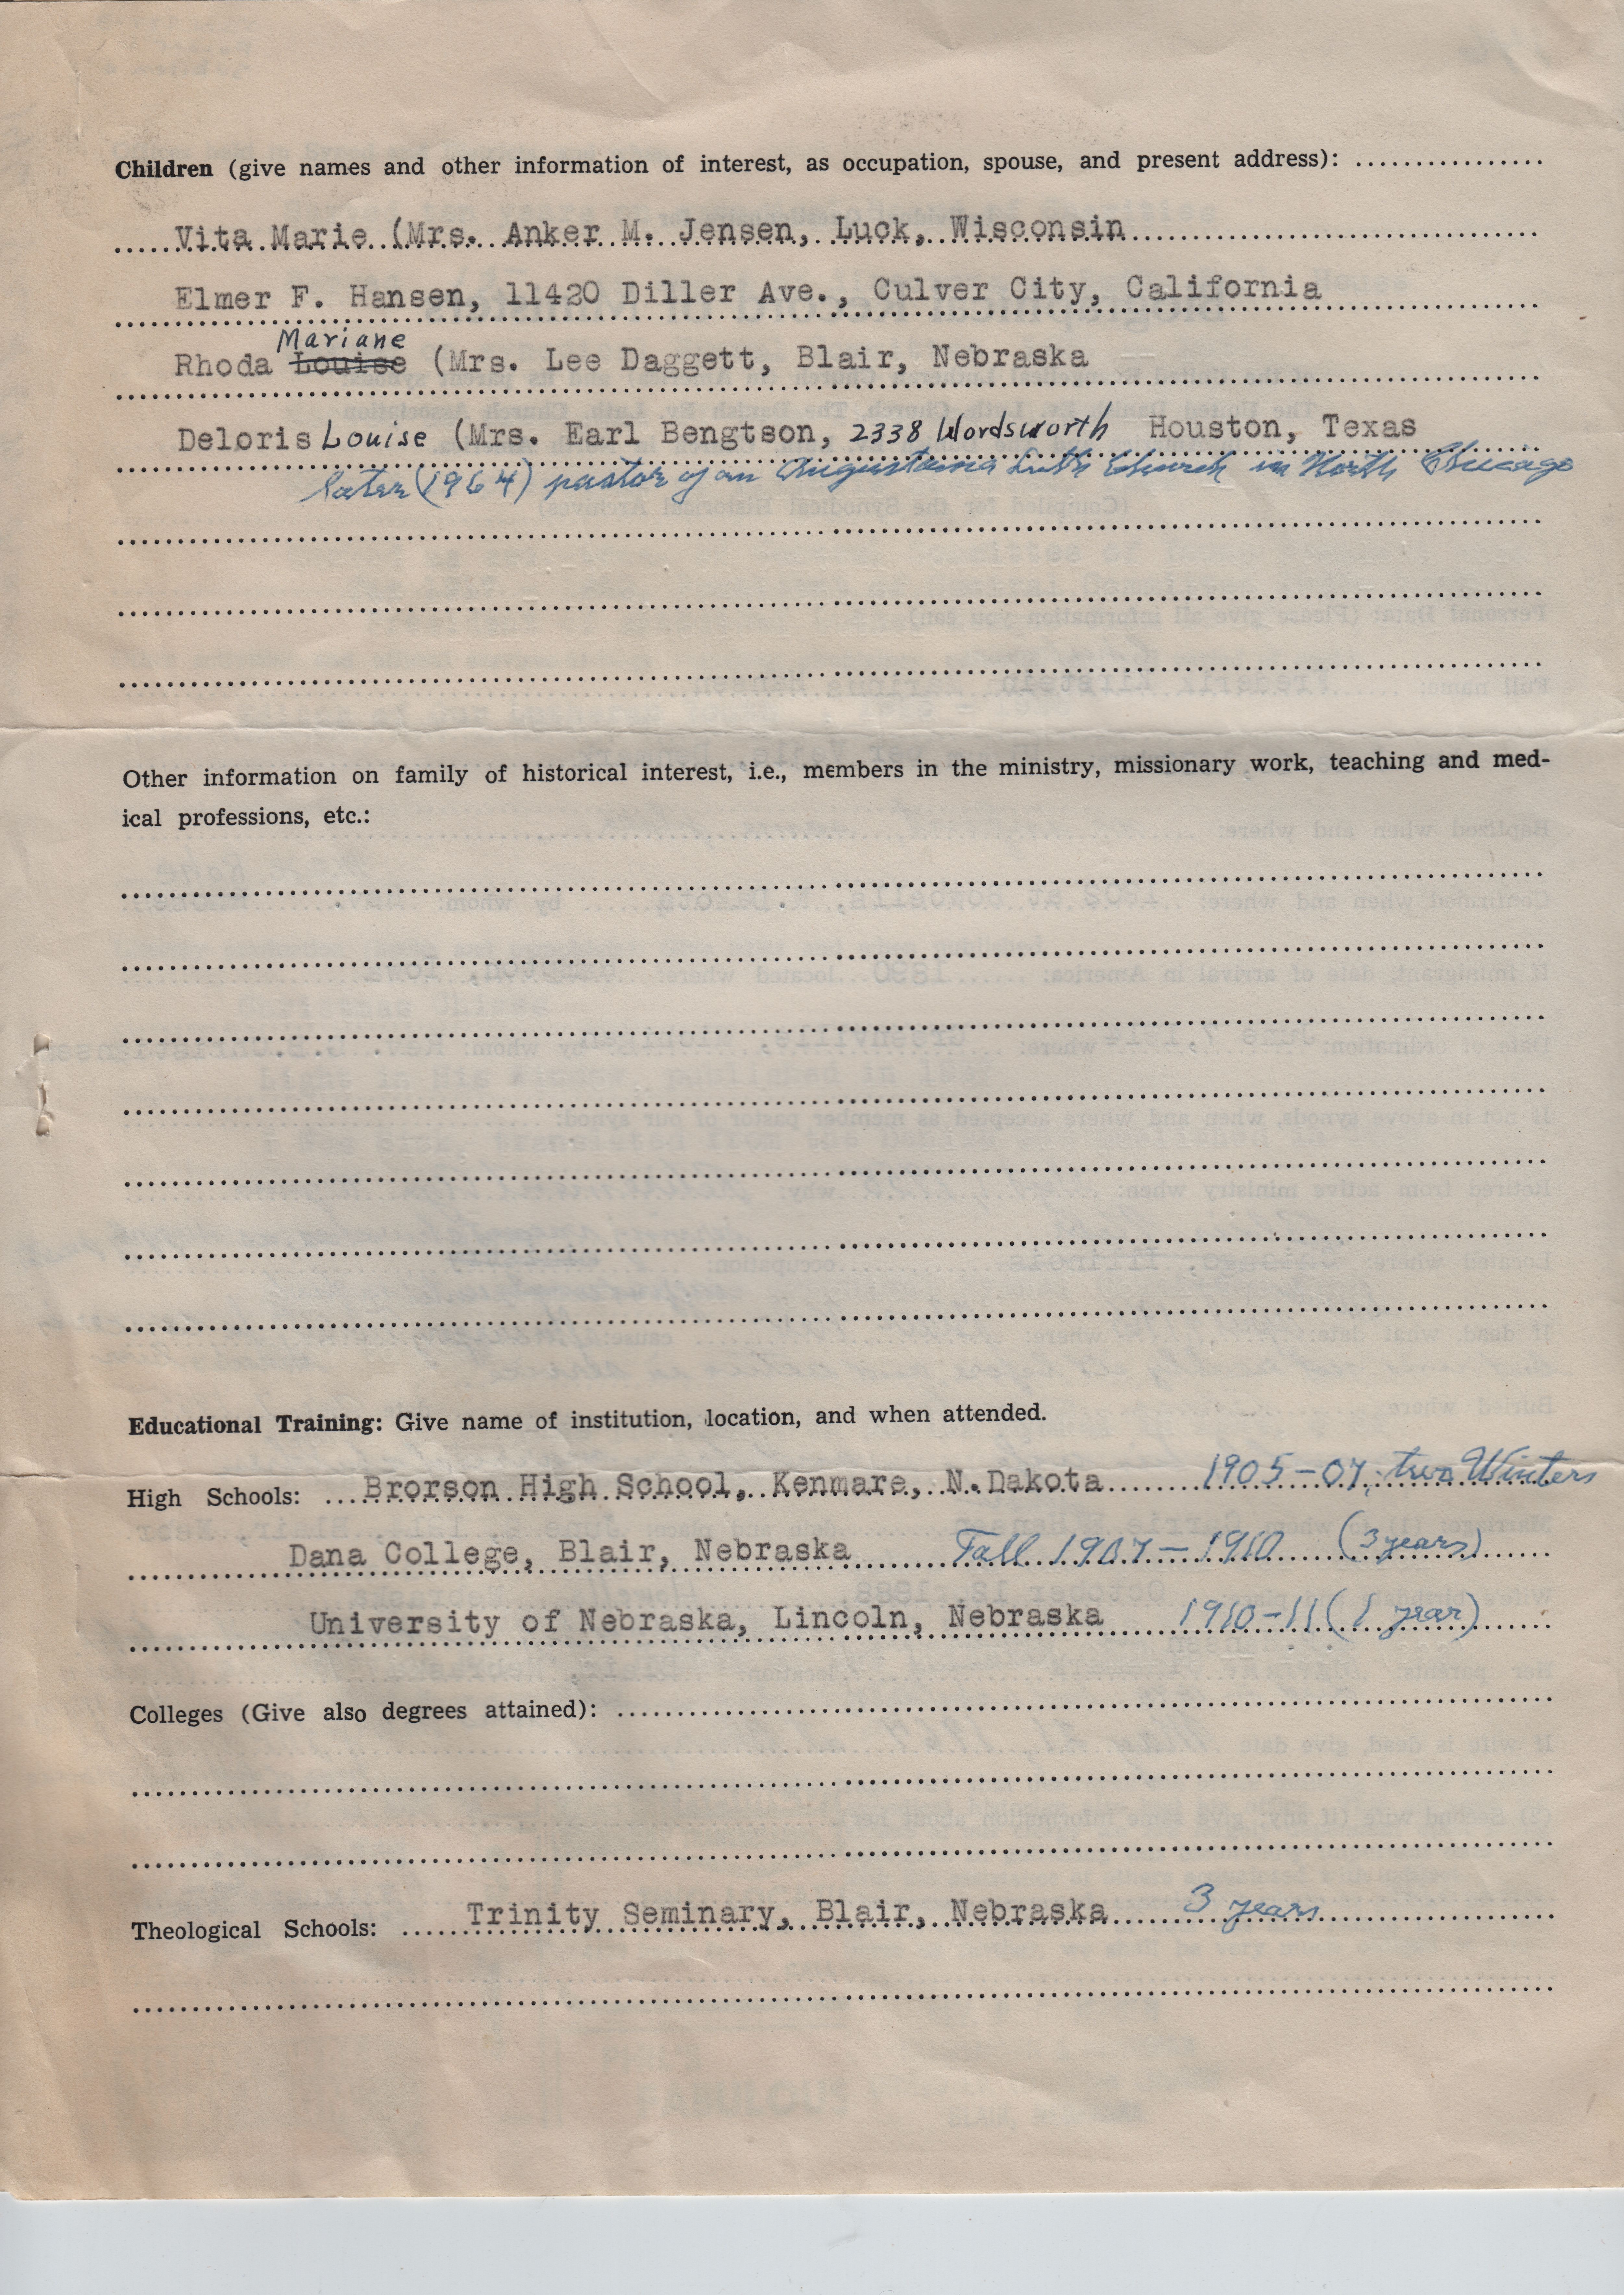 Children (give names and other information of interest, as occupation, spouse, and present address):
Vita Marie (Mrs. Anker M. Jensen, Luck, Wisconsin
Elmer F. Hansen, 11420 Diller Ave., Culver City, California
Mariane
Rhoda Louise (Mrs. Lee Daggett, Blair, Nebraska
Deloris Louise (Mrs. Earl Bengtson, 2338 Wordsworth Houston, Texas
later (1964) pastor of an Augustana Luth Church in North Chicago
Other information on family of historical interest, i.e., members in the ministry, missionary work, teaching and med-
ical professions, etc.:
Educational Training: Give name of institution, location, and when attended.
High Schools: Brorson High School, Kenmare, N.Dakota 1905-07, two Winters
Dana College, Blair, Nebraska Fall 1907-1910 (3 years)
University of Nebraska, Lincoln, Nebraska 1910-11 (1 year)
Colleges (Give also degrees attained):
Theological Schools: Trinity Seminary, Blair, Nebraska 3 years